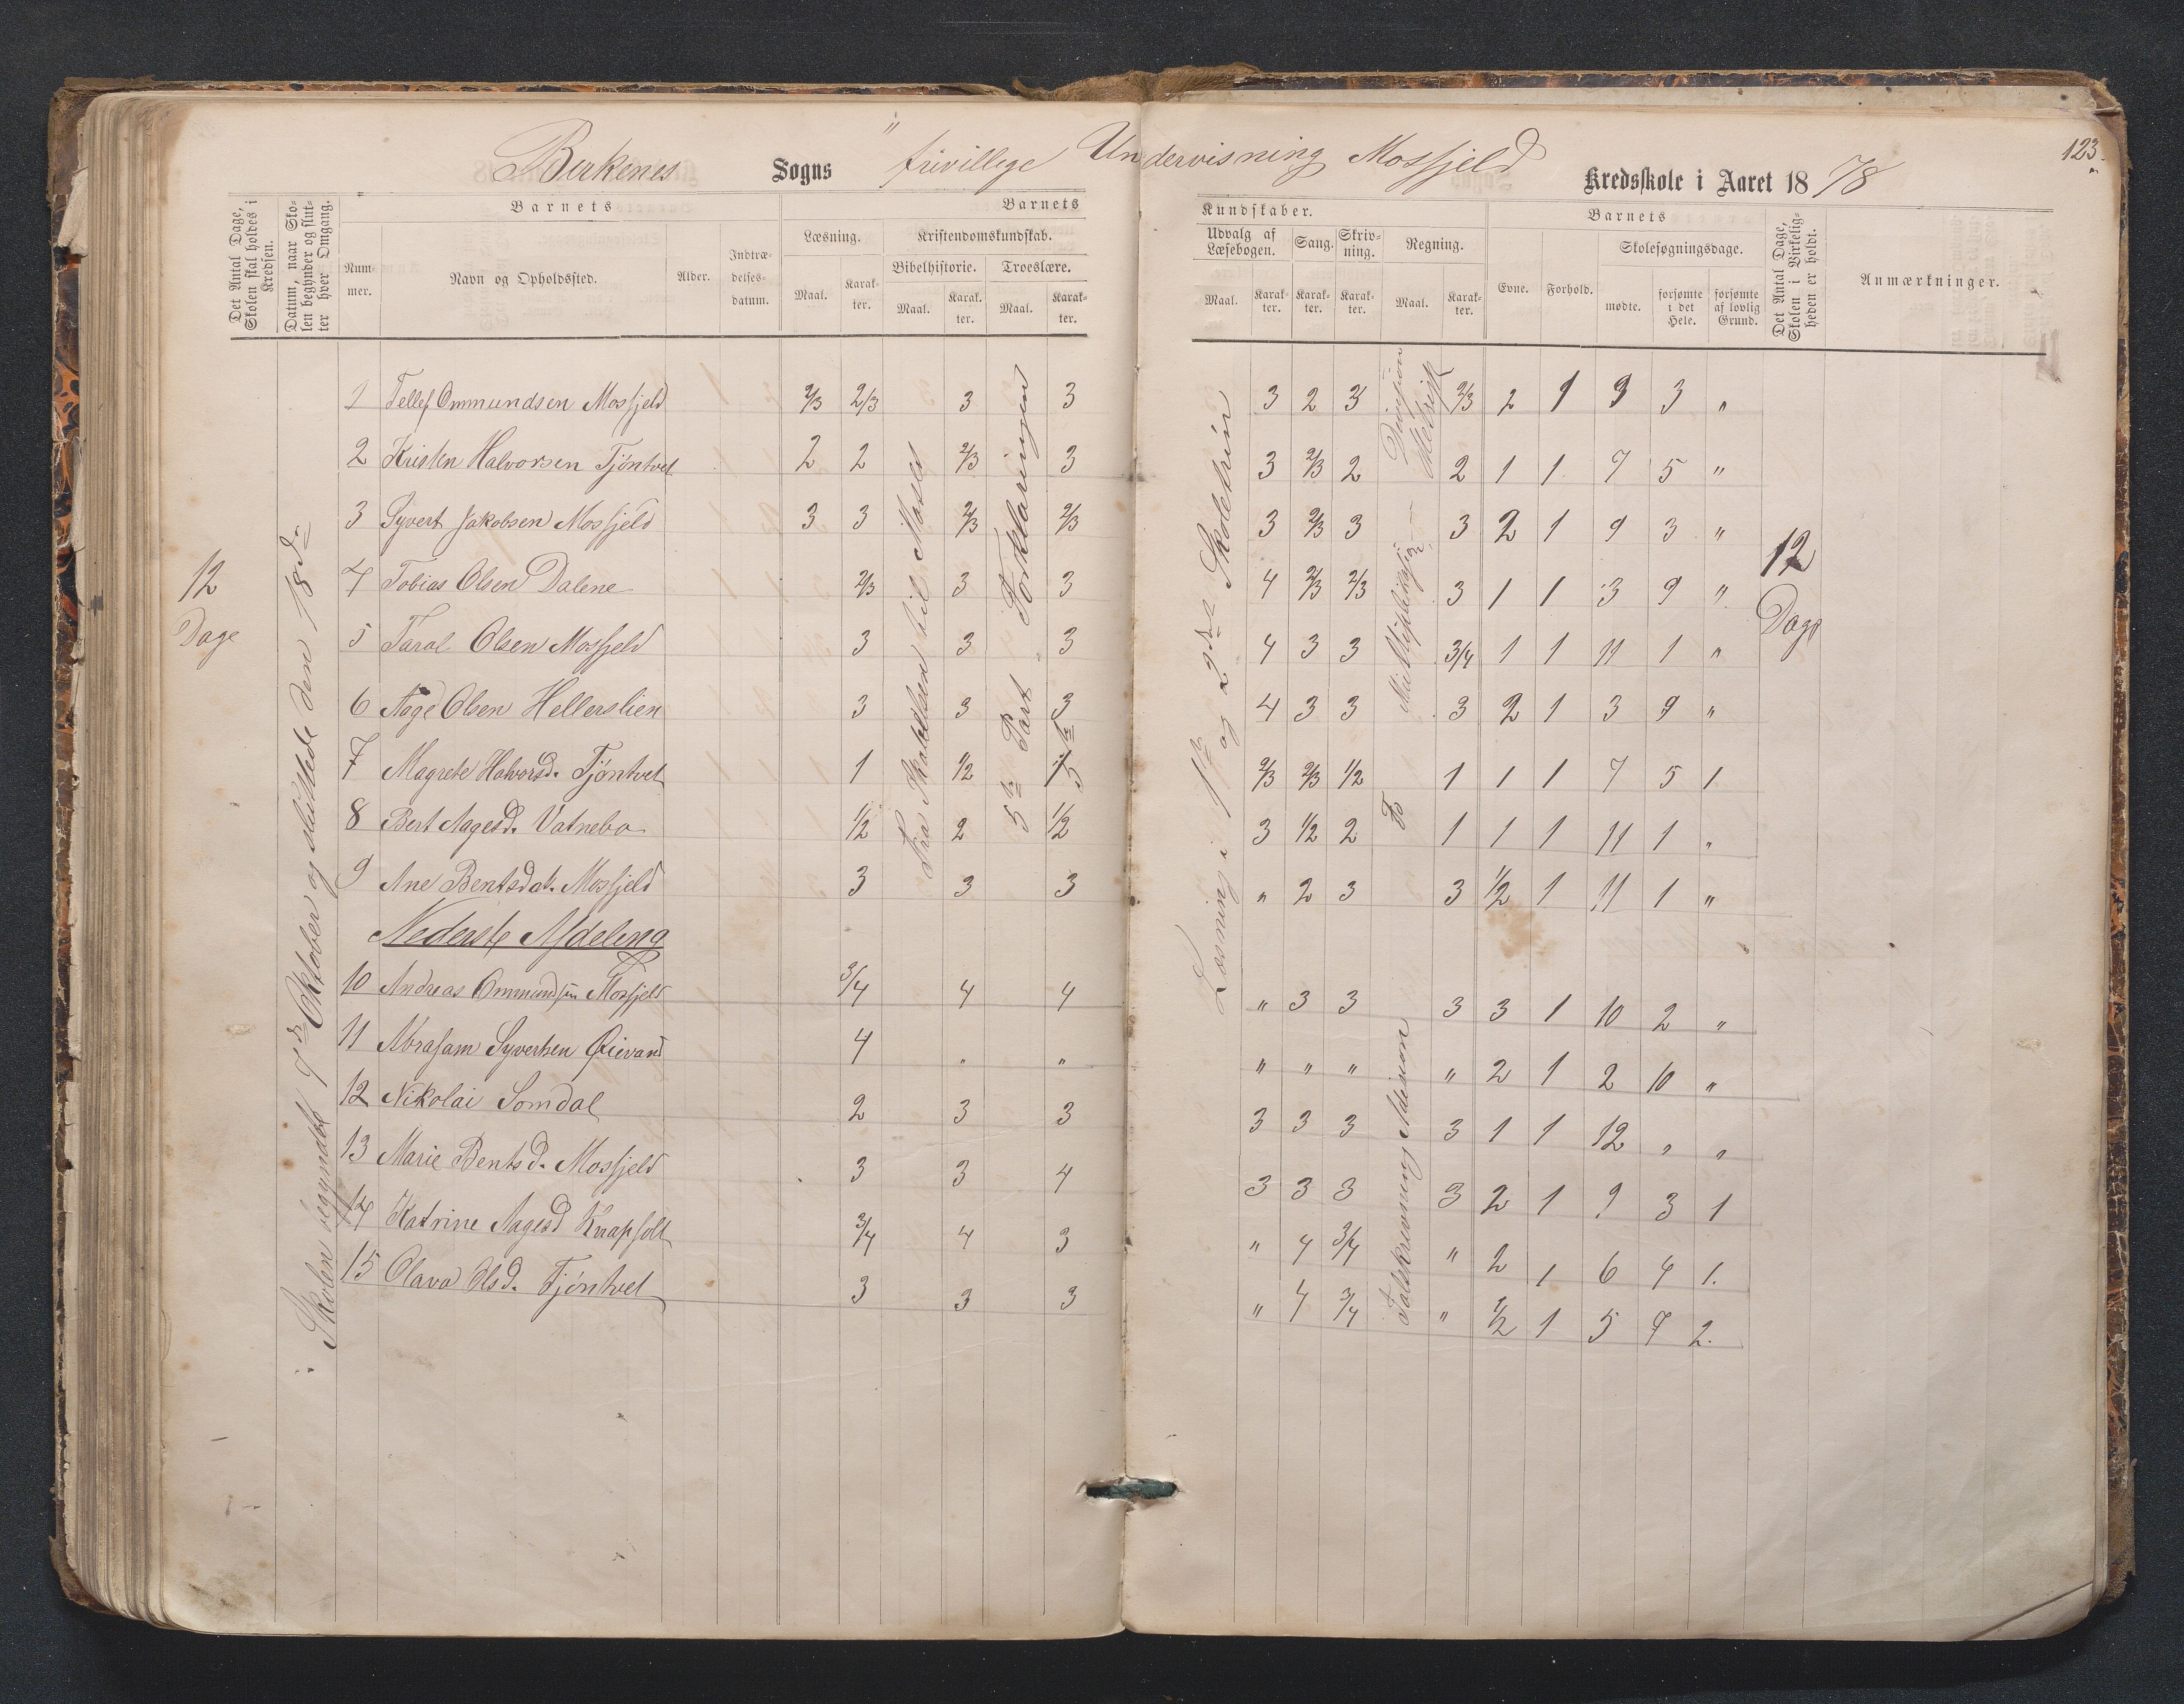 123.
Birkenes Sogns frivillege Undervisning Mosfjeld Kredsskole i Aaret 1878
Det Antal Dage, Skolen skal holdes i Kredsen.
Datum, naar Skolen begynder og slutter hver Omgang.
Barnets
Nummer.
Navn og Opholdssted.
Alder.
Indtrædelsesdatum.
Barnets
Læsning.
Maal.
Karakter.
Kristendomskundskab.
Bibelhistorie.
Maal.
Karakter.
Troeslære.
Maal.
Karakter.
Kundskaber.
Udvalg af Læsebogen.
Maal.
Karakter.
Sang.
Karakter.
Skrivning.
Karakter.
Regning.
Maal.
Karakter.
Barnets
Evne.
Forhold.
Skolesøgningsdage.
mødte.
forsømte i det Hele.
forsømte af lovlig Grund.
Det Antal Dage, Skolen i Virkeligheden er holdt.
Anmærkninger.
12 Dage
Skolen begyndte 7de Oktober og sluttede den 18de
Fra Skabelsen til Moses
5te Part Forklaringen
Læsning i 1ste og 2det Skoletrin
Division
Multiplikasjon
Talskrivning Adision
12 Dage
1 Tellef Ommundsen Mosfjeld 2/3 2/3 3 3 3 2 3 2/3 2 1 9 3 "
2 Kristen Halvorsen Tjöntvet 2 2 2/3 3 3 2/3 2 2 1 1 7 5 "
3 Syvert Jakobsen Mosfjeld 3 3 2/3 2/3 3 2/3 3 3 2 1 9 3 "
4 Tobias Olsen Dalene 2/3 3 3 4 2/3 2/3 3 1 1 3 9 "
5 Taral Olsen Mosfjeld 3 3 3 4 3 3 3/4 1 1 11 1 "
6 Aage Olsen Hellerslien 3 3 3 4 3 3 3 2 1 3 9 "
7 Magrete Halvorsd. Tjöntvet 1 1/2 1,5 2/3 2/3 1/2 1 1 1 7 5 1
8 Bert Aagesd. Vatnebo 1/2 2 1/2 3 1/2 2 1 1 1 11 1 "
9 Ane Bentsdat. Mosfjeld 3 3 3 " 2 3 3 1/2 1 11 1 "
Nederste Afdeling
10 Andreas Ommundsen Mosfjeld 3/4 4 4 " 3 3 3 3 1 10 2 "
11 Abraham Syvertsen Øievand 4 " " " " " " 2 1 2 10 "
12 Nikolai Somdal 2 3 3 3 3 3 3 1 1 12 " "
13 Marie Bentsd. Mosfjeld 3 3 4 3 3 3 3 2 1 9 3 1
14 Katrine Aagesd Knapholt 3/4 4 3 " 4 3/4 " 2 1 6 4 1.
15 Olava Olsd. Tjöntvet 3 3 3 " 4 3/4 " 1/2 1 5 7 2.